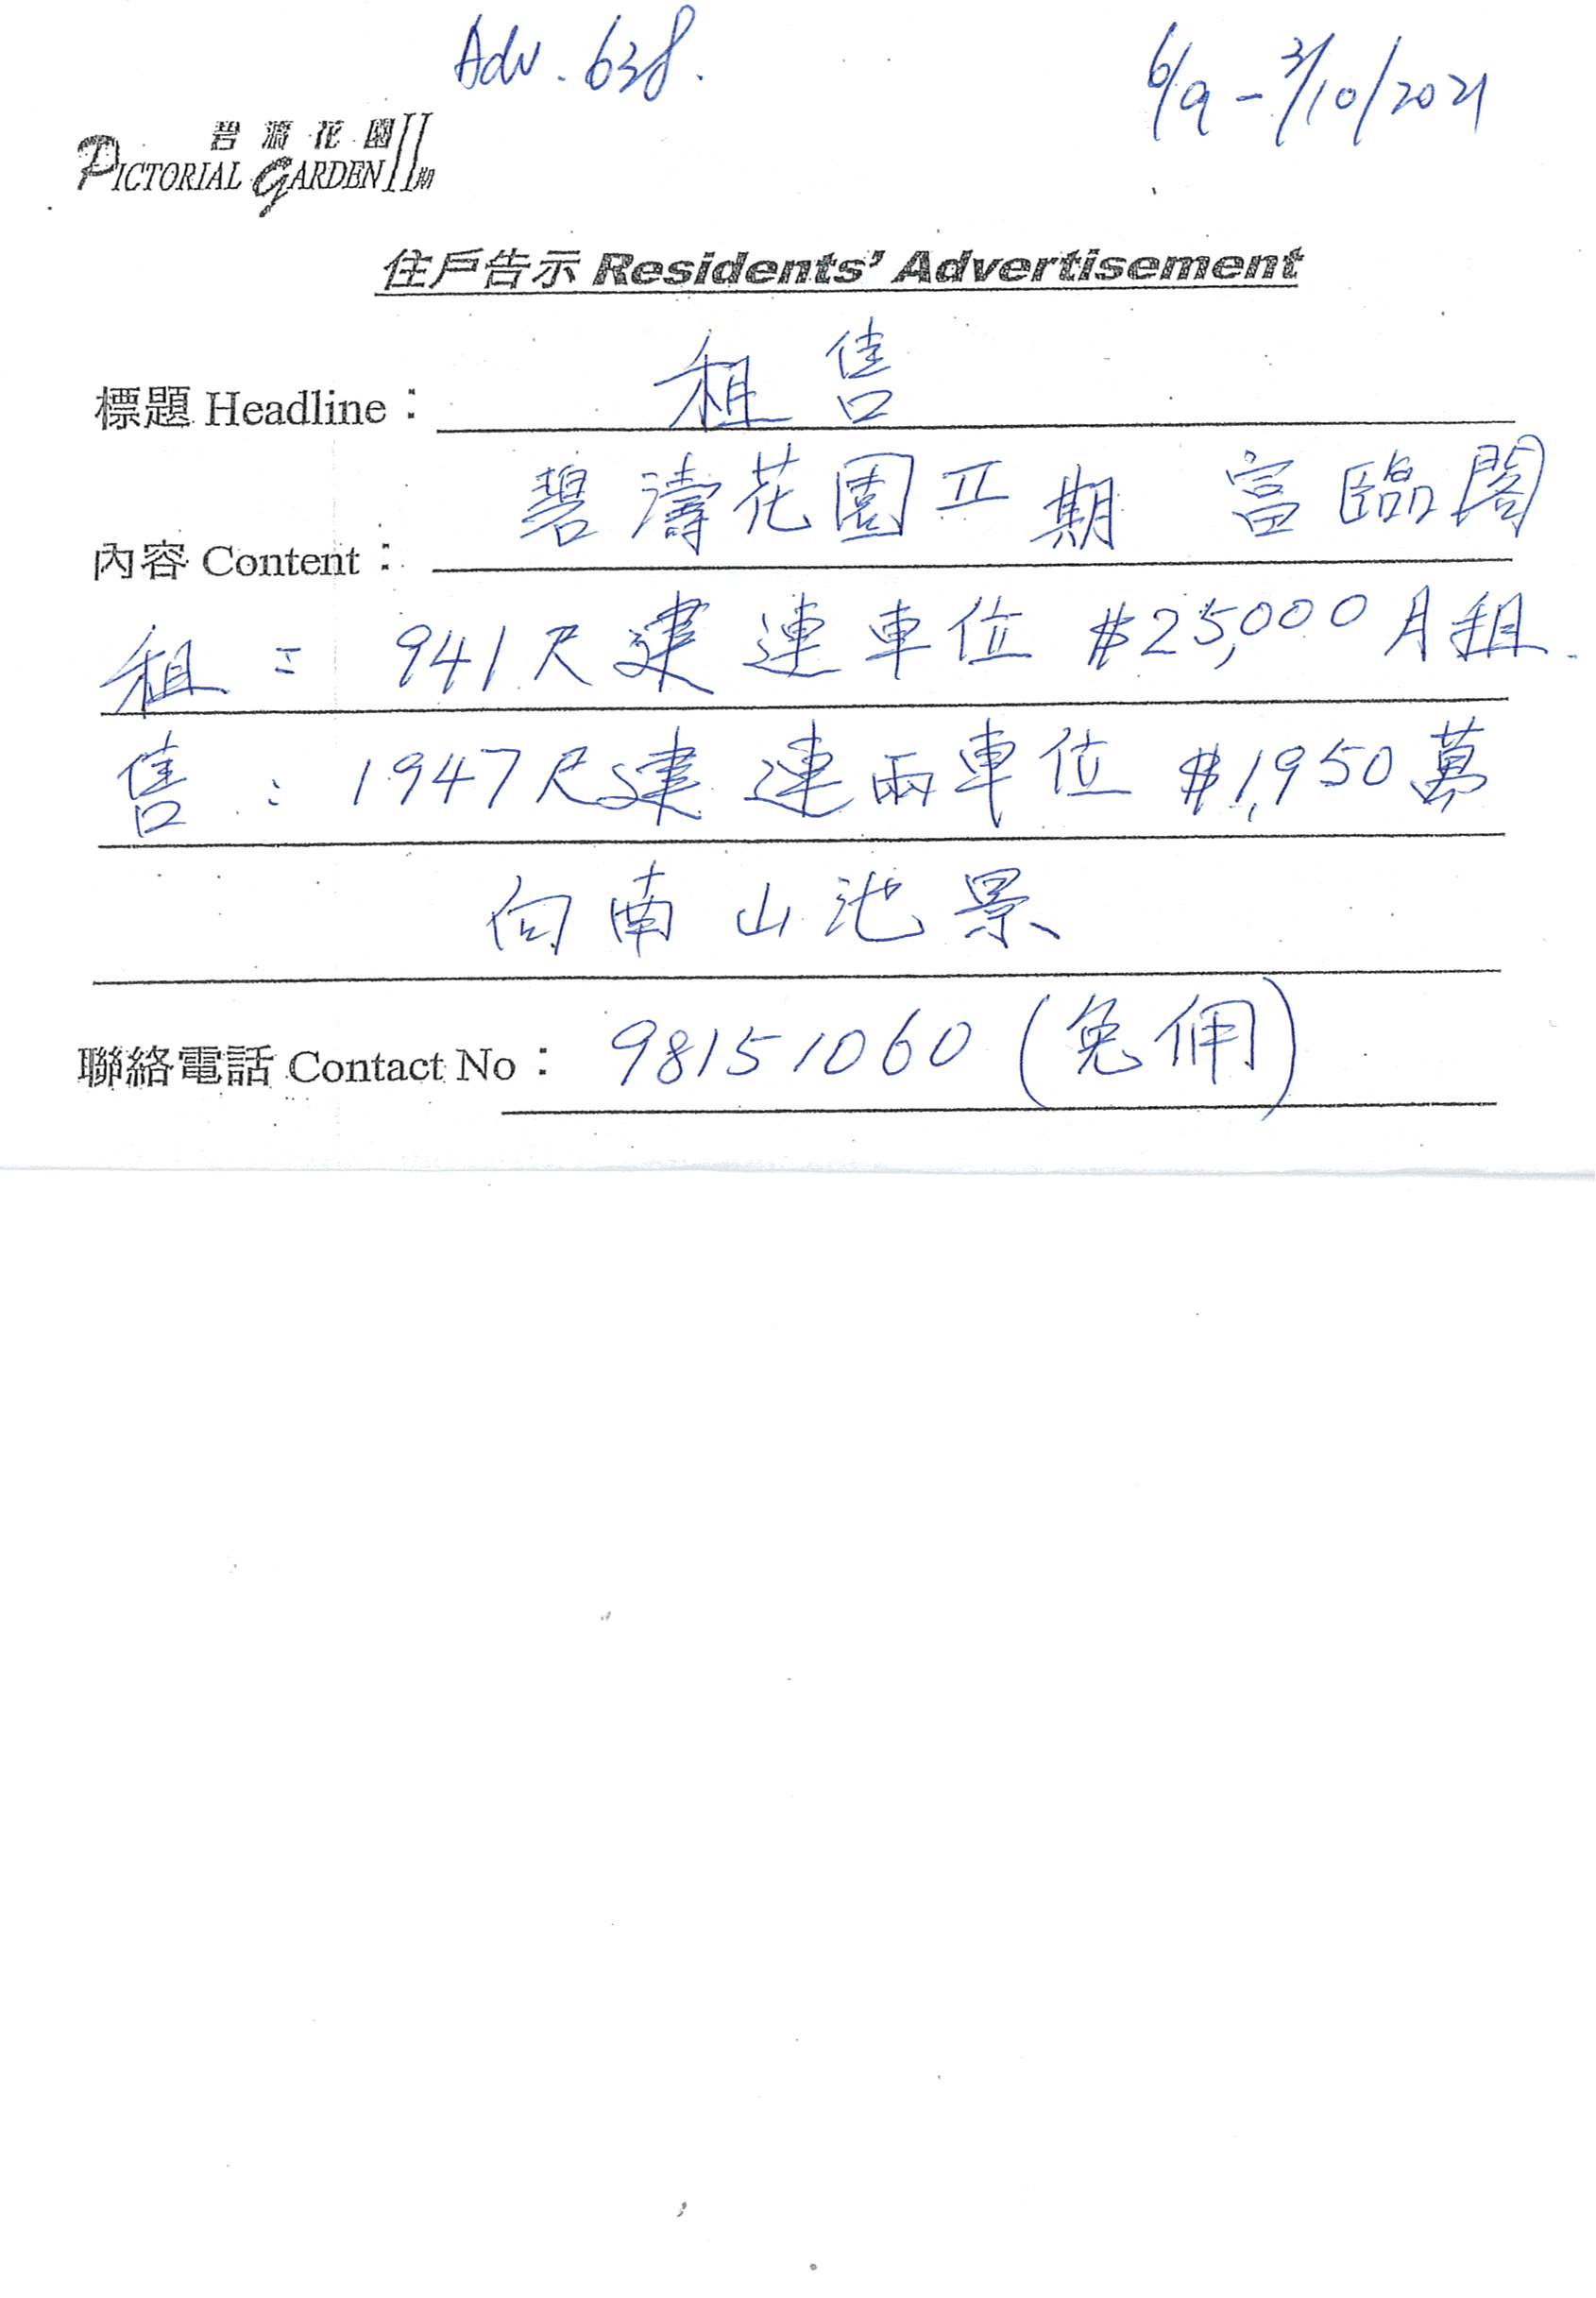 Adv. 638.
6/9 - 3/10/2021
碧濤花園
PICTORIAL GARDEN II期
住戶告示 Residents' Advertisement
標題 Headline： 租售
內容 Content： 碧濤花園II期 富臨閣
租： 941尺建 連車位 $25,000月租.
售： 1947尺建 連兩車位 $1,950萬
向南山池景
聯絡電話 Contact No： 98151060 (免佣)